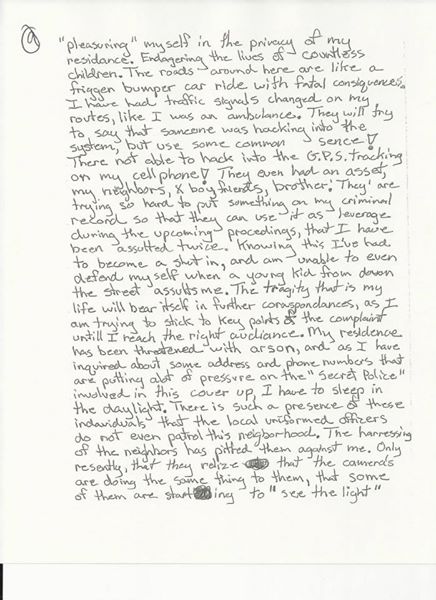 9
"pleasuring" myself in the privacy of my
residance. Endagering the lives of countless
children. The roads around here are like a
friggen bumper car ride with fatal consequences.
I have had traffic signals changed on my
routes, like I was an ambulance. They will try
to say that someone was hacking into the
system, but use some common sence!
There not able to hack into the G.P.S. tracking
on my cell phone! They even had an asset,
my neighbors, x boyfriends, brother. They are
trying so hard to put something on my criminal
record so that they can use it as leverage
during the upcoming procedings, that I have
been assulted twice. Knowing this I've had
to become a shut in, and am unable to even
defend myself when a young kid from down
the street assults me. The tragity that is my
life will bear itself in further corrispondances, as I
am trying to stick to key points of the complaint
untill I reach the right audiance. My residence
has been threatened with arson, and as I have
inquired about some address and phone numbers that
are putting alot of pressure on the "Secret Police"
involved in this cover up, I have to sleep in
the daylight. There is such a presence of these
indaviduals that the local uniformed officers
do not even patrol this neigborhood. The harressing
of the neighbors has pitted them against me. Only
resently, that they relize that the camera's
are doing the same thing to them, that some
of them are starting to "see the light"